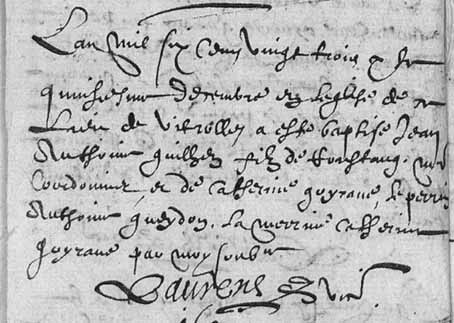 L'an mil six cens vingt trois & le
quinsiesme decembre en leglise de ce
Lieu de Vitrolles a este baptise Jean
Anthoine guilhen filz de Constans me
Cordonnier et de Catherine goyrane, le perrin
Anthoine gueydon. La merrine Catherine
goyrane par moy soubne
Laurens vic